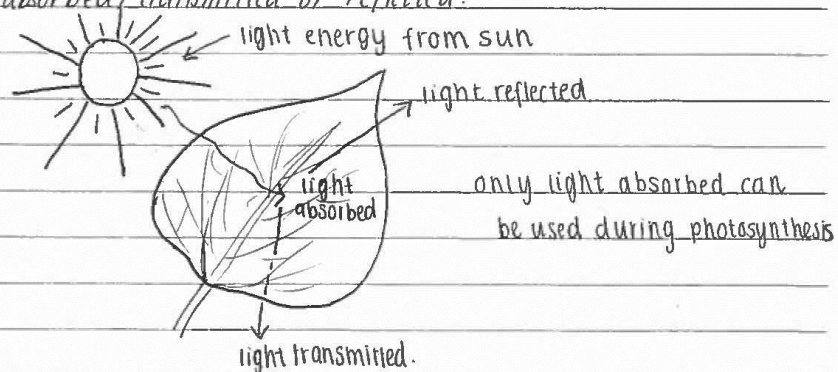 absorbed, transmitted or reflected.
light energy from sun
light reflected
light
absorbed
only light absorbed can
be used during photosynthesis
light transmitted.